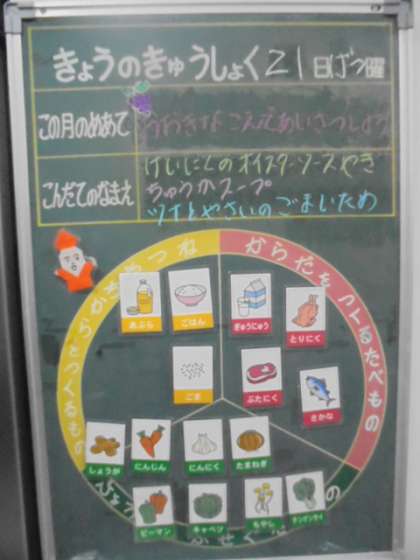 きょうのきゅうしょく 21日げつ曜
この月のめあて
おおきなこえであいさつしよう
こんだてのなまえ
けいにくのオイスターソースやき
ちゅうかスープ
ツナとやさいのごまいため
ねつやちからをつくるもの
からだをつくるたべもの
あぶら
ごはん
ぎゅうにゅう
とりにく
ごま
ぶたにく
さかな
しょうが
にんじん
にんにく
たまねぎ
ピーマン
キャベツ
もやし
チンゲンサイ
ふせぐ